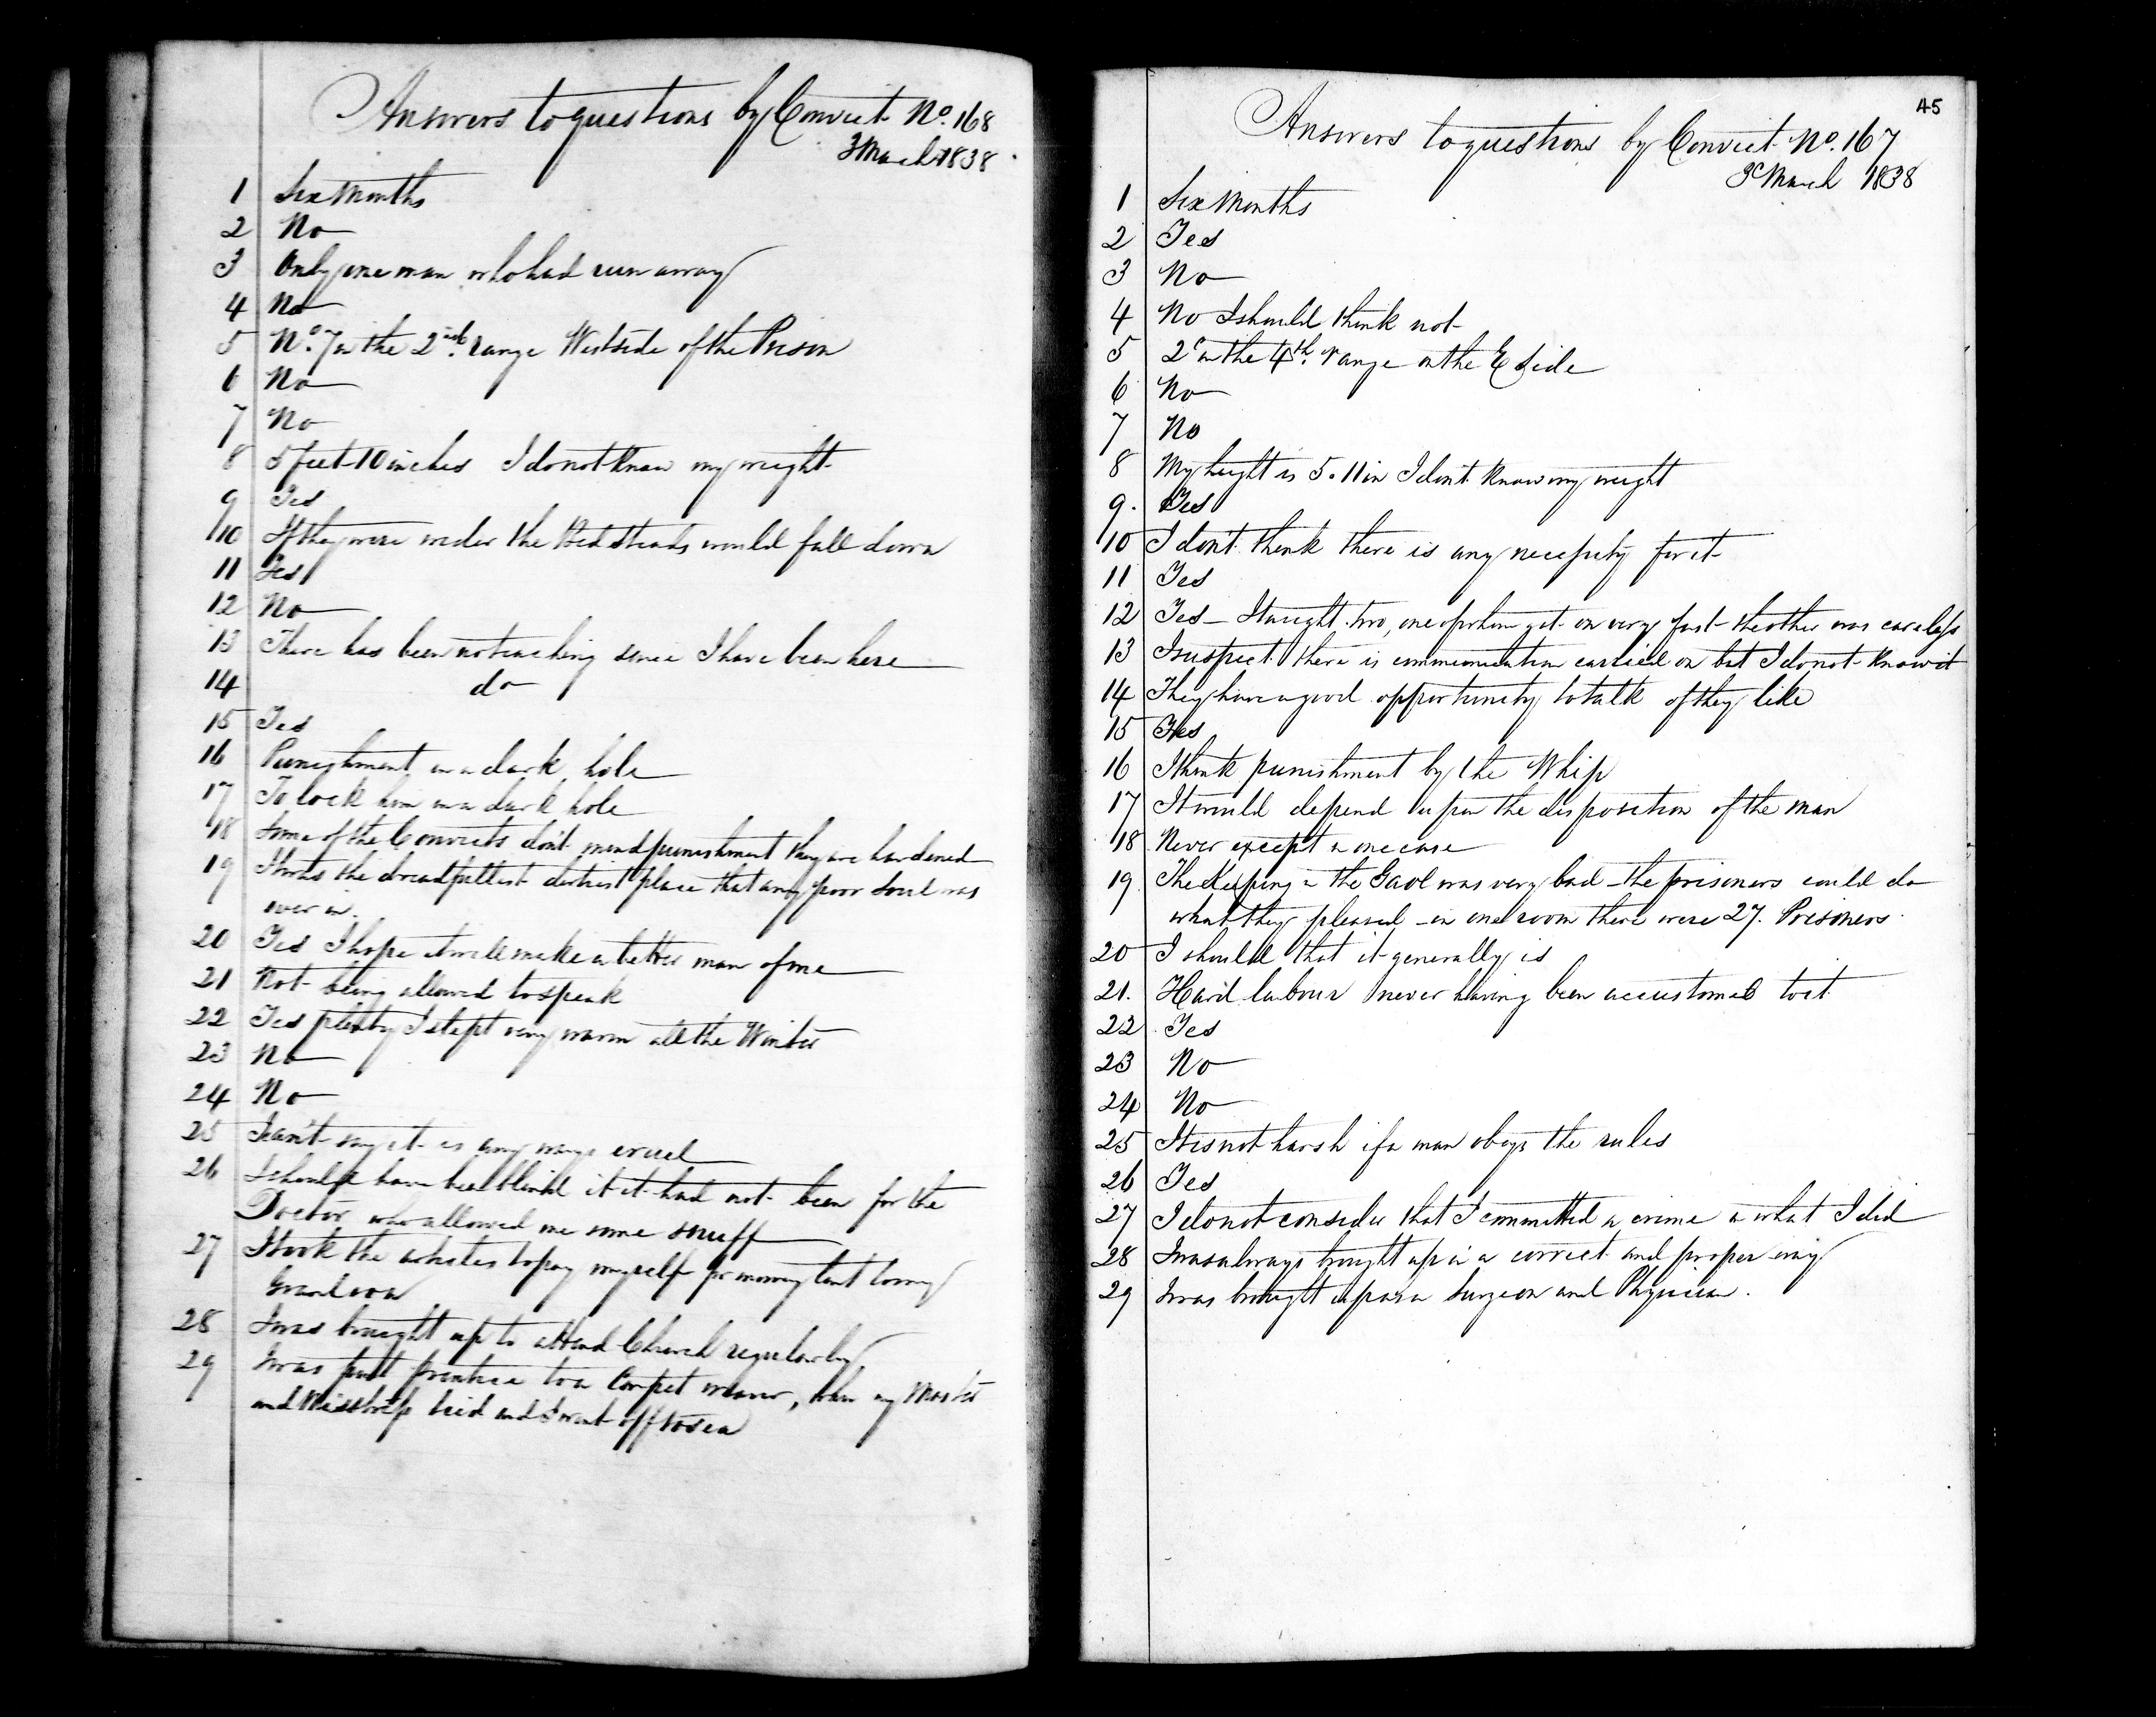 Answers to questions by Convict No. 168
3 March 1838.
1 Six Months
2 No
3 Only one man who had run away
4 No
5 No. 7 in the 2nd. range West side of the Prison
6 No
7 No
8 5 feet 10 inches I do not know my weight
9 Yes
10 If they were under the Bedsteads would fall down
11 Yes
12 No
13 There has been no teaching since I have been here
14 do
15 Yes
16 Punishment in a dark hole
17 To lock him in a dark hole
18 Some of the Convicts don't mind punishment they are hardened
19 It was the dreadfullest dirtiest place that any poor Soul was
ever in.
20 Yes I hope it will make a better man of me
21 Not being allowed to speak
22 Yes plenty I slept very warm all the Winter
23 No
24 No
25 I can't say it is any ways cruel
26 I should have been blind it it had not been for the
Doctor who allowed me some snuff
27 I took the to pay myself for money lent to my
Grandson
28 I was brought up to attend Church regularly
29 I was put prentice to a Carpet weaver, when my Master
and Misstress died and I went off to sea
45
Answers to questions by Convict No. 167
3d March 1838
1 Six Months
2 Yes
3 No
4 No I should think not
5 2d in the 4th. range on the E Side
6 No
7 No
8 My height is 5.11 in I dont know my weight
9. Yes
10 I dont think there is any necessity for it
11 Yes
12 Yes – I taught two, one of whom got on very fast the other was careless
13 I suspect there is communication carried on but I do not know it
14 They have a good opportunity to talk if they like
15 Yes
16 I think punishment by the Whip
17 It would depend upon the disposition of the man
18 Never except in one case
19 The Keeping in the Gaol was very bad – the prisoners could do
what they pleased – in one room there were 27. Prisoners.
20 I should that it generally is
21. Hard labour never having been accustomed to it
22 Yes
23 No
24 No
25 It is not harsh if a man obeys the rules
26 Yes
27 I do not consider that I committed a crime in what I did
28 I was always brought up in a correct and proper way
29 I was brought up as a Surgeon and Physician.